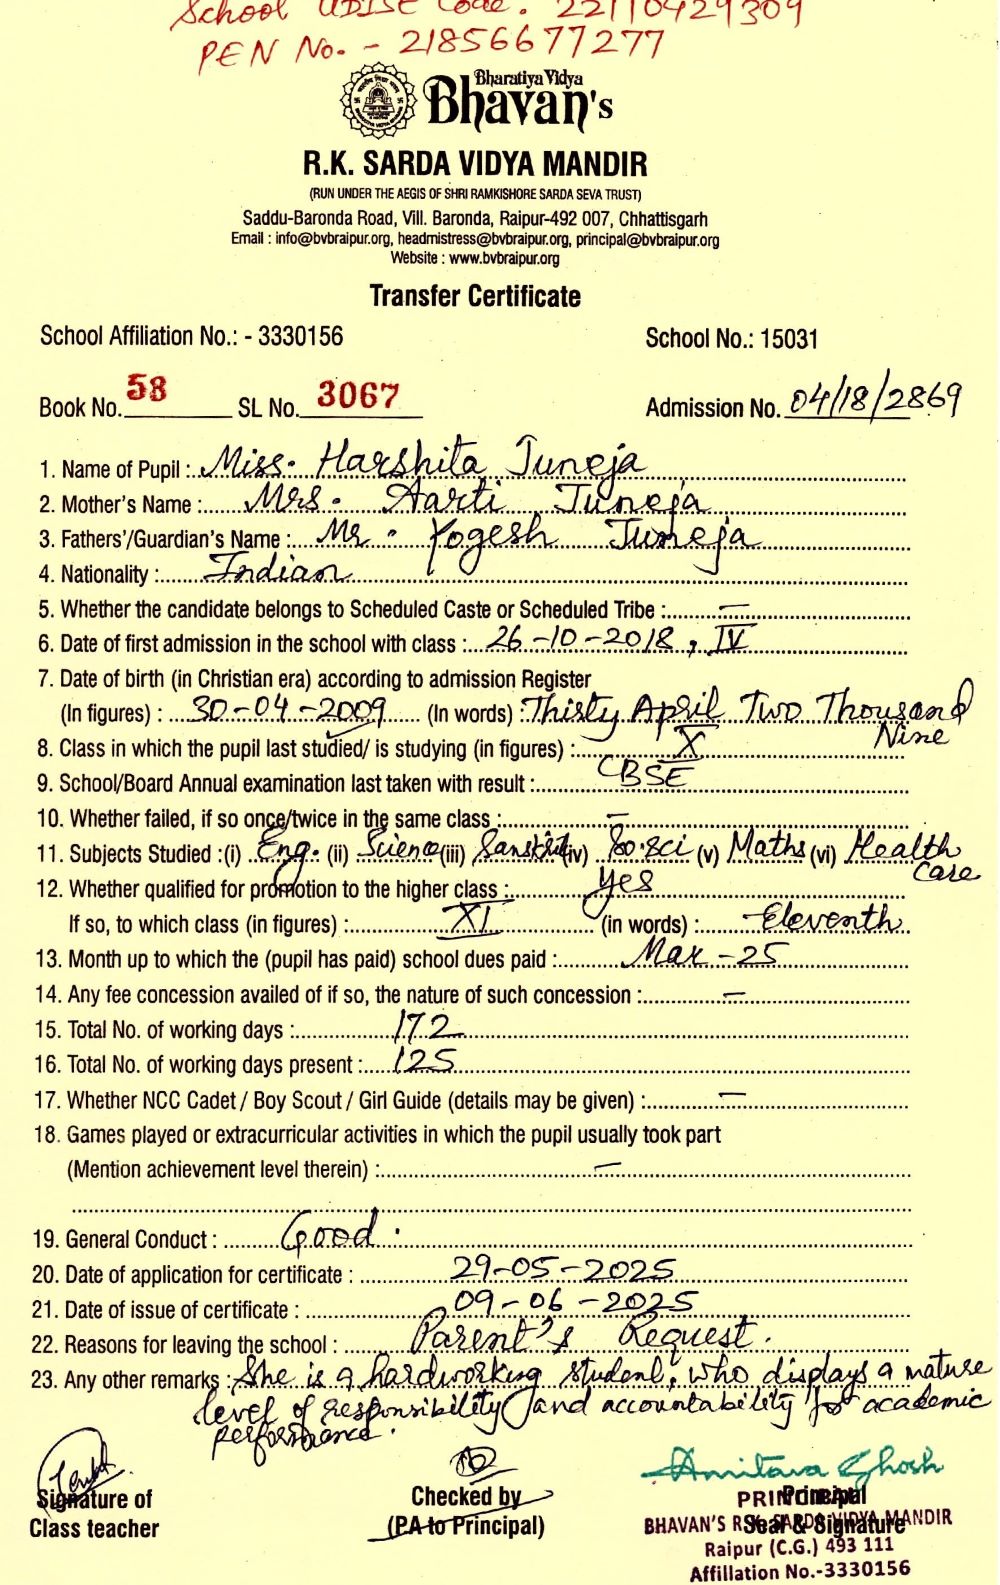 School UDISE Code. 22110429309
PEN No. - 21856677277
Bharatiya Vidya
Bhavan's
R.K. SARDA VIDYA MANDIR
(RUN UNDER THE AEGIS OF SHRI RAMKISHORE SARDA SEVA TRUST)
Saddu-Baronda Road, Vill. Baronda, Raipur-492 007, Chhattisgarh
Email : info@bvbraipur.org, headmistress@bvbraipur.org, principal@bvbraipur.org
Website : www.bvbraipur.org
Transfer Certificate
School Affiliation No.: - 3330156 School No.: 15031
Book No. 58 SL No. 3067 Admission No. 04/18/2869
1. Name of Pupil : Miss. Harshita Juneja
2. Mother's Name : Mrs. Aarti Juneja
3. Fathers'/Guardian's Name : Mr. Yogesh Juneja
4. Nationality : Indian
5. Whether the candidate belongs to Scheduled Caste or Scheduled Tribe : —
6. Date of first admission in the school with class : 26-10-2018, IV
7. Date of birth (in Christian era) according to admission Register
(In figures) : 30-04-2009 (In words) : Thirty April Two Thousand
Nine
8. Class in which the pupil last studied/ is studying (in figures) : X
9. School/Board Annual examination last taken with result : CBSE
10. Whether failed, if so once/twice in the same class : —
11. Subjects Studied :(i) Eng. (ii) Science (iii) Sanskrit (iv) So.sci (v) Maths (vi) Health
Care
12. Whether qualified for promotion to the higher class : Yes
If so, to which class (in figures) : XI (in words) : Eleventh
13. Month up to which the (pupil has paid) school dues paid : Mar-25
14. Any fee concession availed of if so, the nature of such concession : —
15. Total No. of working days : 172
16. Total No. of working days present : 125
17. Whether NCC Cadet / Boy Scout / Girl Guide (details may be given) : —
18. Games played or extracurricular activities in which the pupil usually took part
(Mention achievement level therein) : —
19. General Conduct : Good.
20. Date of application for certificate : 29-05-2025
21. Date of issue of certificate : 09-06-2025
22. Reasons for leaving the school : Parent's Request.
23. Any other remarks : She is a hardworking student, who displays a mature
level of responsibility and accountability for academic
performance.
Amitava Ghosh
Signature of Checked by Principal
Class teacher (PA to Principal) Seal & Signature
PRINCIPAL
BHAVAN'S R.K. SARDA VIDYA MANDIR
Raipur (C.G.) 493 111
Affillation No.-3330156